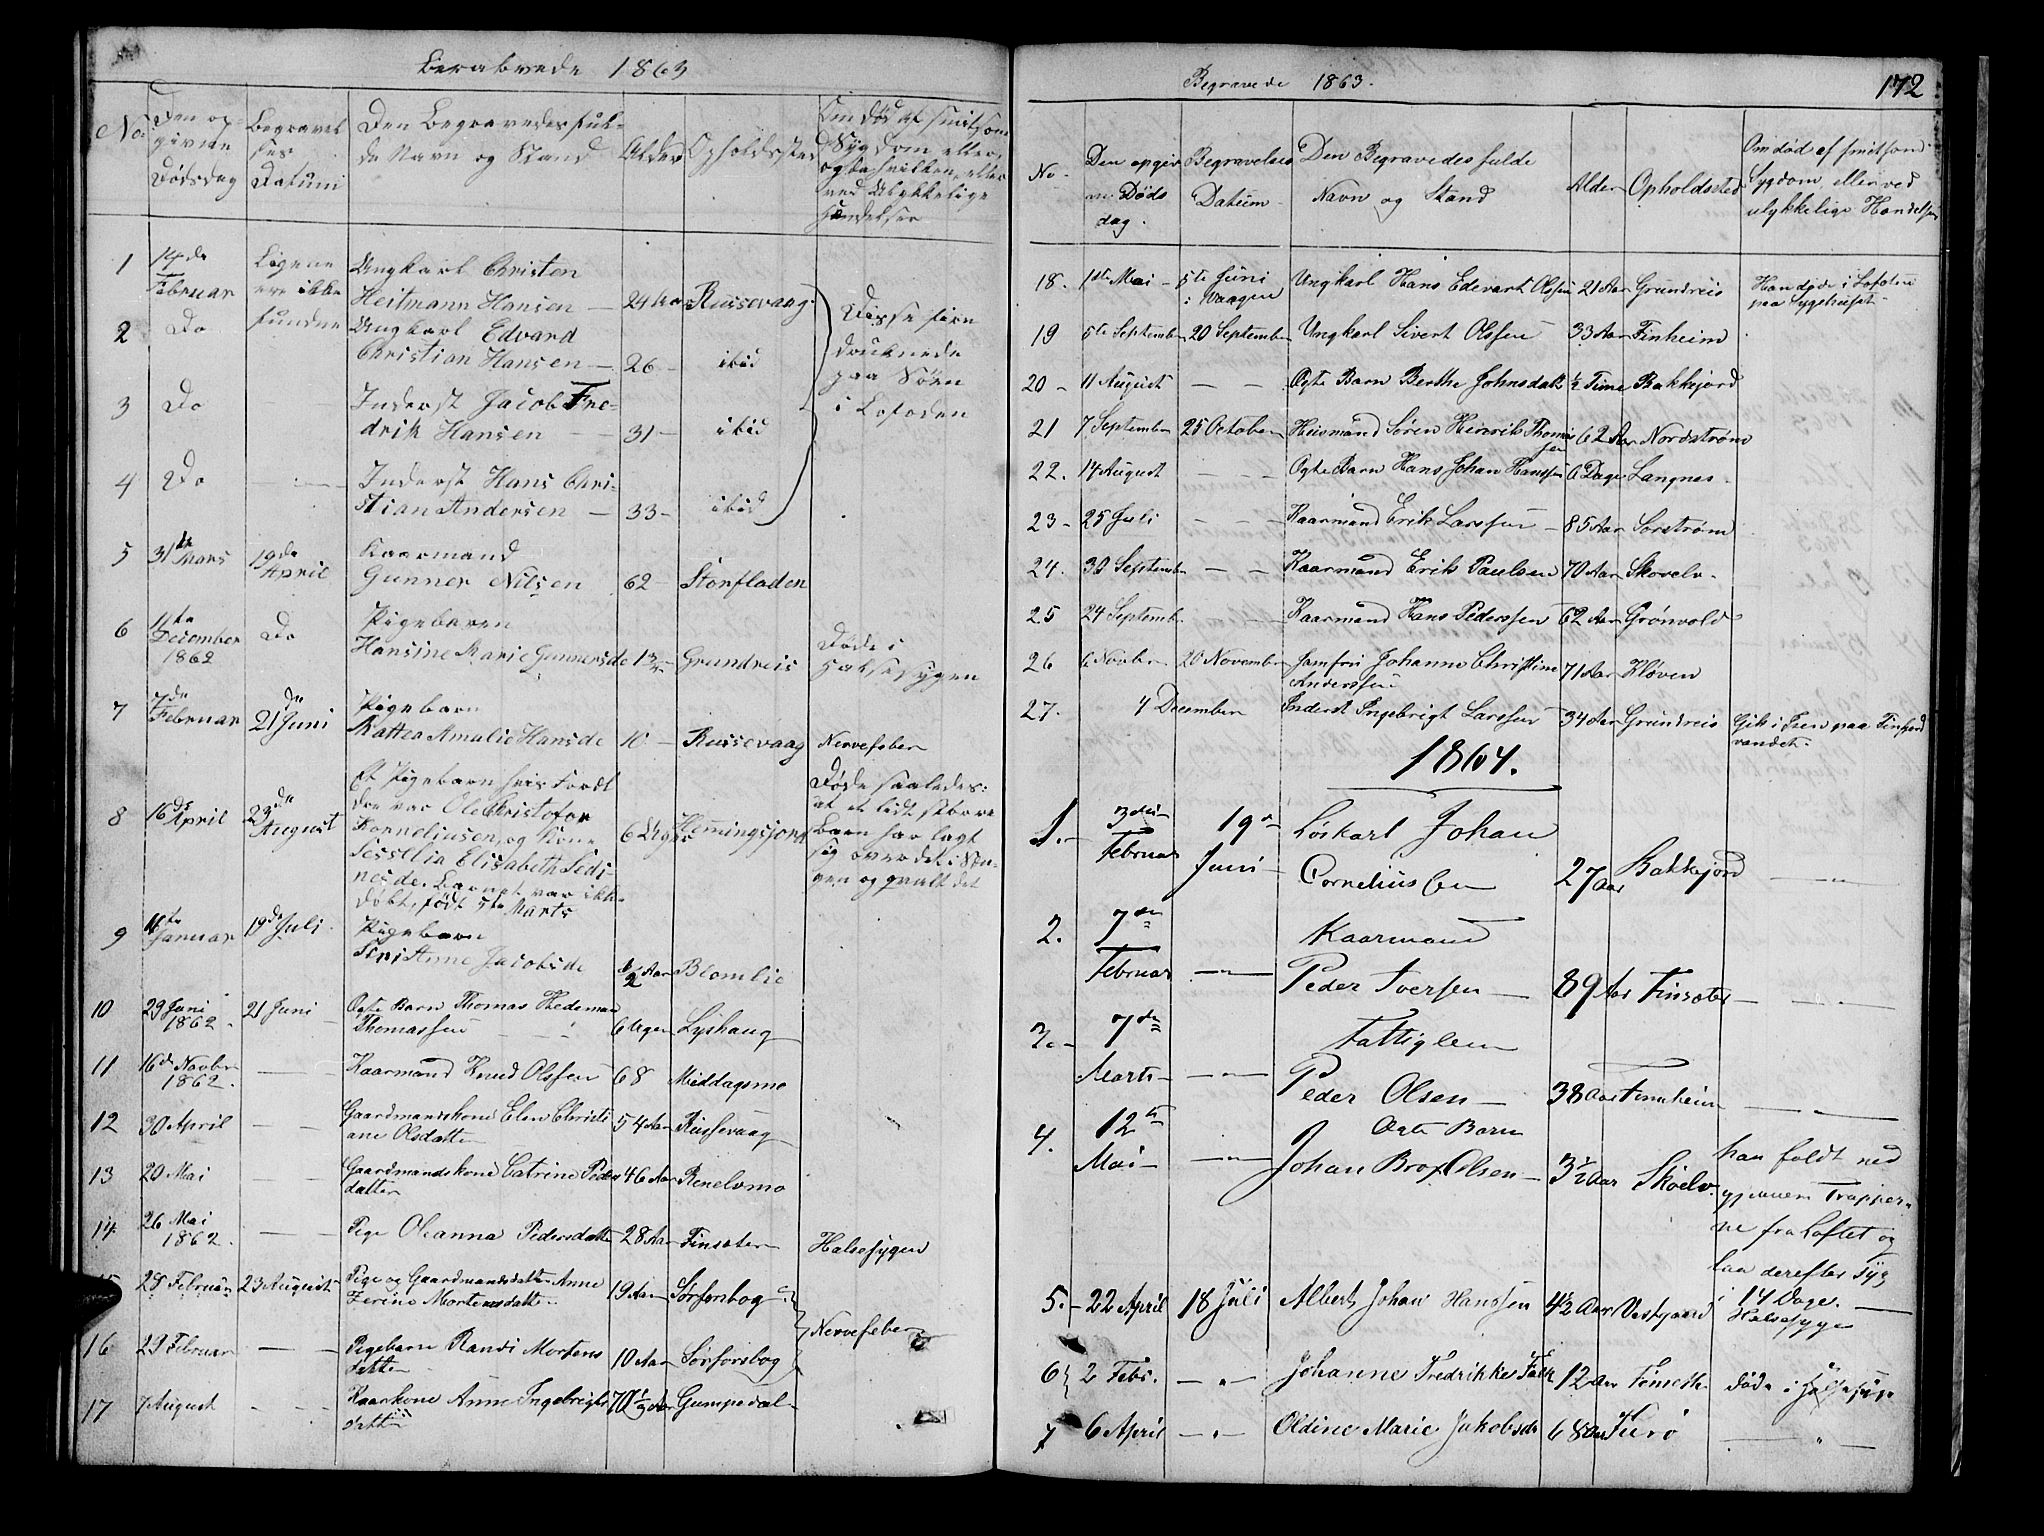 Begravede 1863
No.
Den op-
givne
Dødsdag
Begravel
ses
Datum
Den Begravedes ful-
de Navn og Stand
Alder
Opholdssted
Om død af smitsom
Sygdom eller
ved Ulykkelige
Hændelser
1 14de Februar Ligene ere ikke fundne Ungkarl Christen
Heitmann Hansen — 24 Aar Russevaag
Disse fire
druknede
paa Søen
i Lofoden
2 Do Ungkarl Edvard
Christian Hansen — 26 — ibid
3 Do Inderst Jacob Fre-
drik Hansen — 31 — ibid
4 Do — Inderst Hans Chri-
stian Andersen — 33 — ibid
5 31te Marts 19de April Kaarmand
Gunner Nilsen 62 — Storfladen
6 11te December 1862 Do Pigebarn
Hansine Marie Gunnersde 13/4 — Grundreis Døde i
Halsesygen
7 7de Februar 21de Juni Pigebarn
Mattea Amalie Hansde 10 — Russevaag Nervefeber
8 16de April 23de August Et Pigebarn hvis Foræl
dre var Ole Christofor
Korneliusen, og Kone
Sessilia Elisabeth Sedi-
nesde. Barnet var ikke
døbt, født 5te Marts
6 Uger Hemmingsjord
Døde saaledes:
at et lidt større
Barn har lagt
sig over det i Sen-
gen og qvalt det
9 11te Januar 19de Juli Pigebarn
Siri Anne Jacobsde 1/2 Aar Blomlie
10 29 Juni 1862. 21 Juni Ægte Barn Thomas Hedeman
Thomassen — 6 Uger Lyshaug
11 16de Novbr 1862. — Kaarmand Knud Olssen 68 Middagsmo
12 30 April — — Gaardmandskone Elen Christi
ane Olsdatter 54 Aar Russevaag
13 20 Mai Gaardmandskone Catrine Peder
datter 46 Aar Renelvmo
14. 26 Mai 1862. — — Pige Oleanna Pedersdatter 28 Aar Finsæter Halsesygen
15 28 Februar 23 August Pige og Gaardmandsdatter Anne
Zerine Mortensdatter 19 Aar Sørforsbog
Nervefeber
16 29 Februar — — Pigebarn Randi Mortens
datter 10 Aar Sørforsbog
17 7 August — — Kaarkone Anne Ingebrigts
datter 70 1/2 Aar Gumpedal
Begravede 1863.
172
No.
Den opgiv
ne Døds
dag.
Begravelses
Datum
Den Begravedes fulde
Navn og Stand
Alder
Opholdssted
Om død af smitsom
Sygdom, eller ved
ulykkelige Hændelser
18. 1ste Mai — 5te Juni i Vaagen Ungkarl Hans Edevart Olssen 21 Aar Grundreis Han døde i Lofoten
paa Sygehuset
19 5te September 20 September Ungkarl Sivert Olssen 33 Aar Finheim
20 — 11 August — — Ægte Barn Berthe Johnsdatter 1/2 Time Bakkejord
21 7 September 25 October Huusmand Søren Hinrik Thomas
sen 62 Aar Nordstrøm
22. 14 August — — Ægte Barn Hans Johan Hanssen 6 Dage Langnes.
23 — 25 Juli — — Kaarmand Erik Larssen — 85 Aar Sørstrøm
24. 30 September — — Kaarmand Erik Paulsen 70 Aar Skovelv.
25 24 Septemb. — Kaarmand Hans Pederssen 62 Aar Grønvold
26 6 Novbr 20 November Jomfru Johanne Christine
Anderssen 71 Aar Kløven
27. 4 December Inderst Ingebrigt Larssen 34 Aar Grundreis Gik i Isen paa Finfjord
vandet.
1864.
1. — 3die Februar 19de Juni — Løskarl Johan
Corneliussen 27 Aar Bakkejord — " —
2. 7de Februar — " — Kaarmand
Peder Iversen — 89 Aar Finsæter — " —
3. — 7de Marts — — " — Fattiglem
Peder Olsen — 38 Aar Finnheim — " —
4. 12te Mai — — " — Ægte Barn
Johan Brox Olsen — 3 1/2 Aar Skoelv.
han faldt ned
gjennem Trapper-
ne fra Loftet og
laa derefter syg
i 14 Dage.
5. — 22 April 18 Juli Albert Johan Hanssen 4 1/2 Aar Vestgaard Halsesyge
6 2 Febr. — " — Johanne Fredrikke Falk 12 Aar Finseth døde i Halsesyge
7 6 April — " — Oldine Marie Jakobsdr 68 Aar Furø — " —